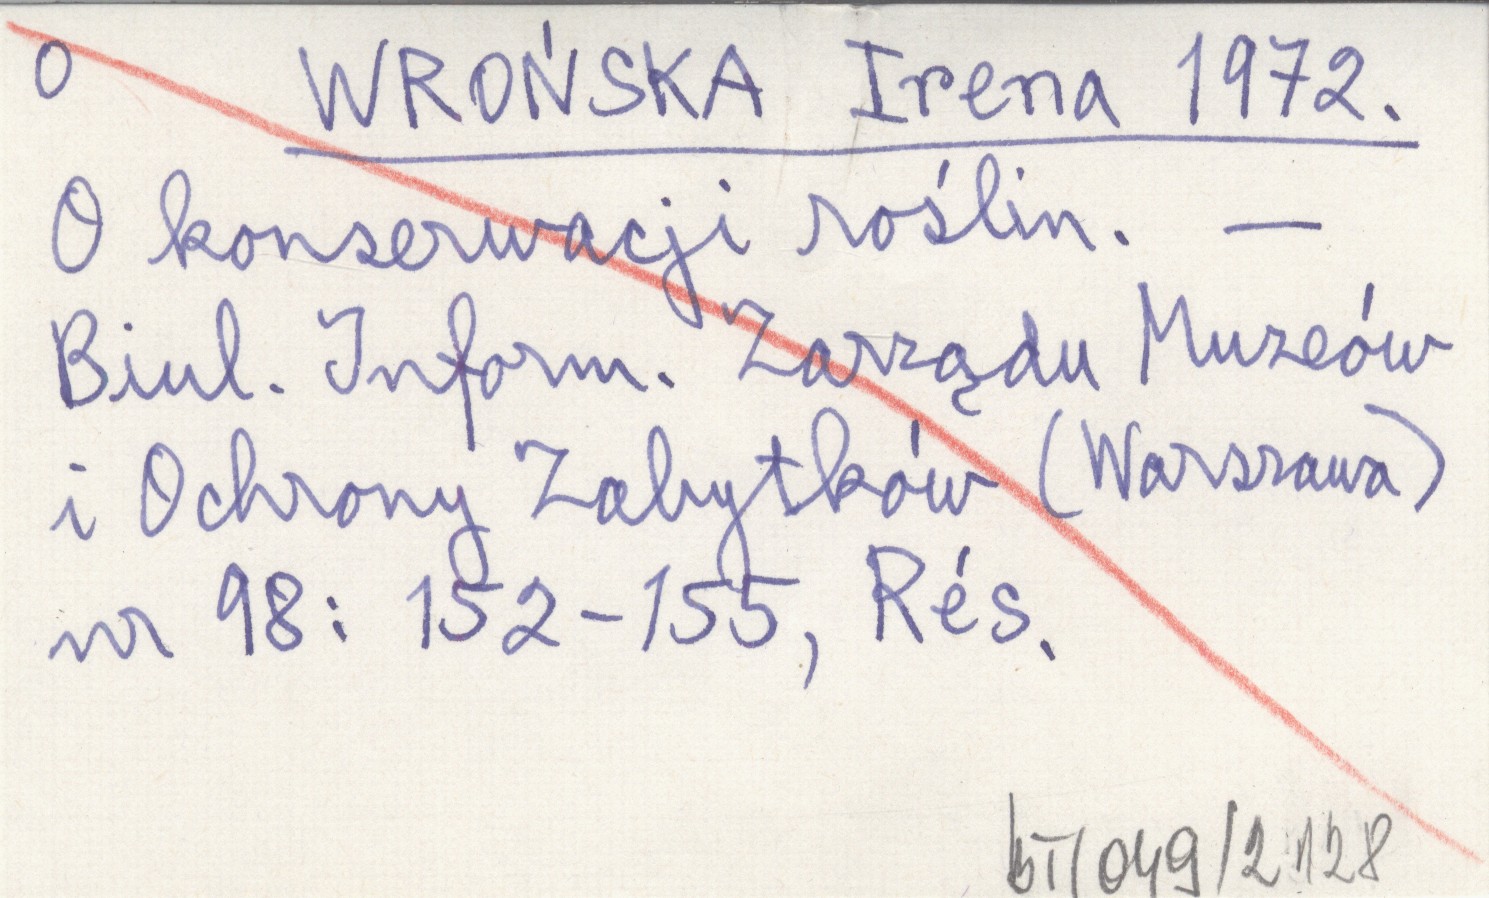 O WROŃSKA Irena 1972.
O konserwacji roślin. —
Biul. Inform. Zarządu Muzeów
i Ochrony Zabytków (Warszawa)
nr 98: 152-155, Rés.
/049/2128